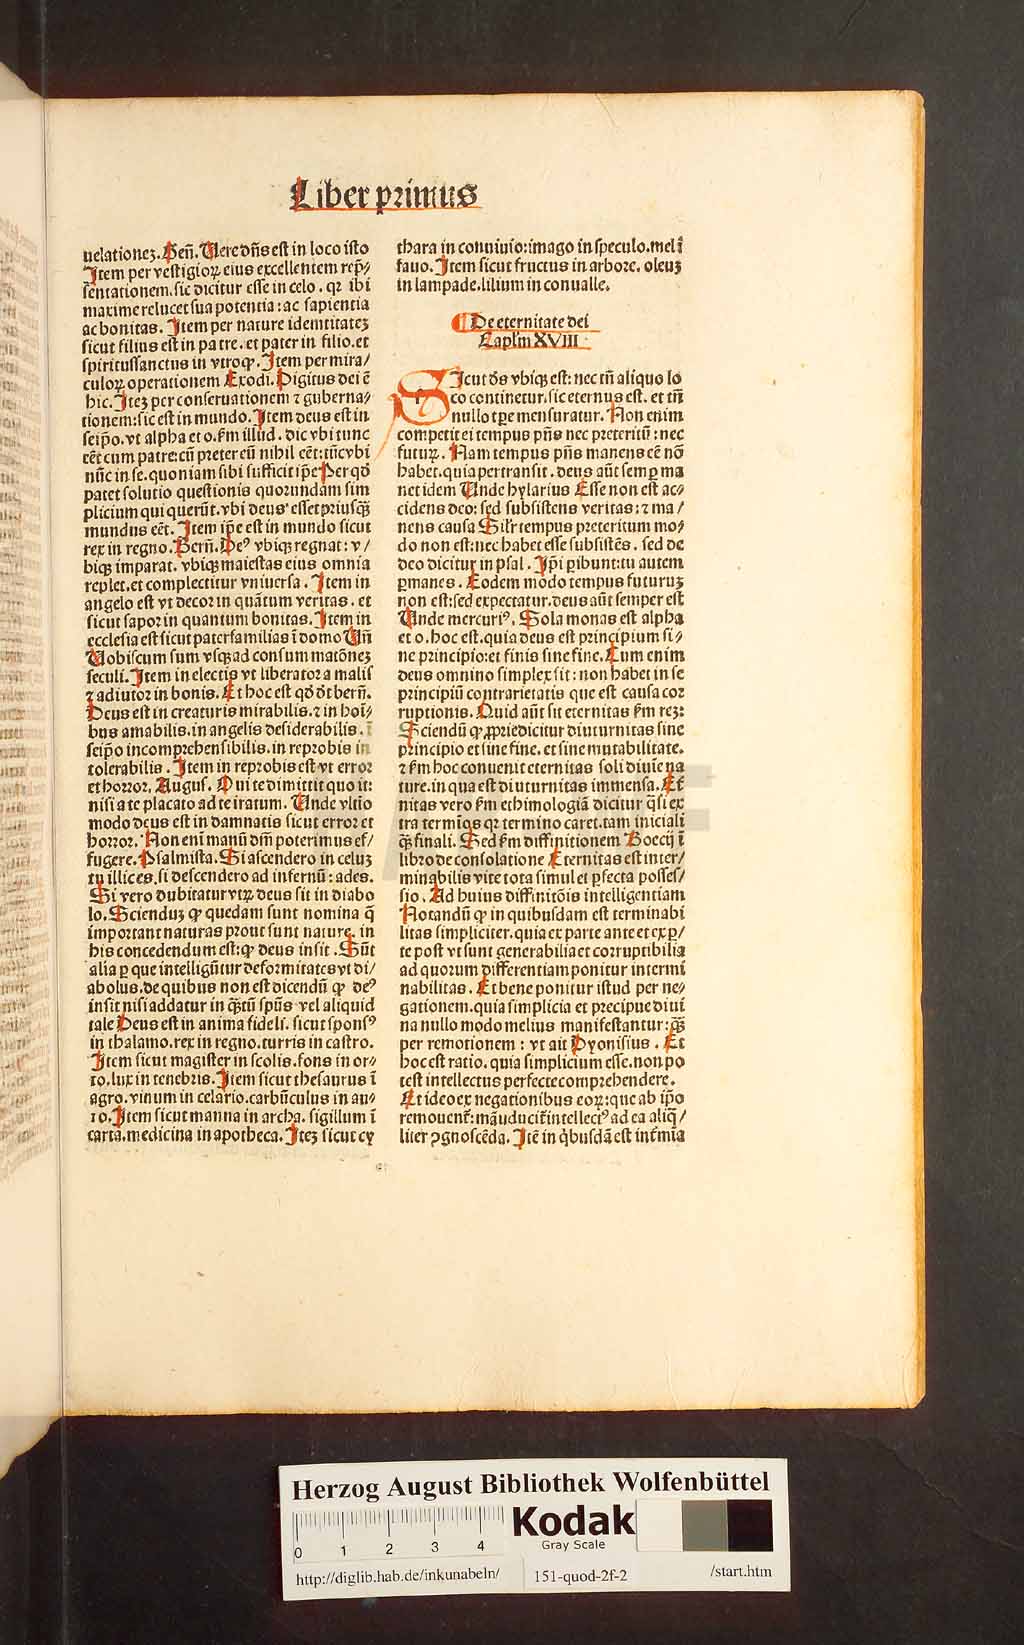 Liber primus
uelationez. Geñ. Uere dñs est in loco isto
Item per vestigioꝝ eius excellentem rep̄⸗
sentationem. sic dicitur esse in celo. qꝛ ibi
maxime relucet sua potentia: ac sapientia
ac bonitas. Item per nature idemtitatez
sicut filius est in patre. et pater in filio. et
spiritussanctus in vtroqꝫ. Item per mira/
culoꝝ operationem Exodi. Digitus dei ē
hic. Itez per conseruationem ⁊ guberna⸗
tionem: sic est in mundo. Item deus est in
seip̄o. vt alpha et o. s̄m illud. dic vbi tunc
eēt cum patre: cū preter eū nihil eēt: tūc vbi
nūc in se. quoniam sibi sufficit ip̄e Per qd̄
patet solutio questionis quorundam sim
plicium qui querūt. vbi deus esset priusqꝫ̄
mundus eēt. Item ip̄e est in mundo sicut
rex in regno. Berñ. Deꝰ vbiqꝫ regnat: v/
biqꝫ imparat. vbiqꝫ maiestas eius omnia
replet. et complectitur vniuersa. Item in
angelo est vt decor in quātum veritas. et
sicut sapor in quantum bonitas. Item in
ecclesia est sicut paterfamilias ī domo Uñ
Uobiscum sum vsqꝫ ad consum matōnez
seculi. Item in electis vt liberator a malis
⁊ adiutor in bonis. Et hoc est qd̄ dt̄ berñ.
Deus est in creaturis mirabilis. ⁊ in hoī⸗
bus amabilis. in angelis desiderabilis. ī
seip̄o incomprehensibilis. in reprobis in
tolerabilis. Item in reprobis est vt error
et horror. Augus. Qui te dimittit quo it:
nisi a te placato ad te iratum. Unde vltio
modo deus est in damnatis sicut error et
horror. Non enī manū dm̄ poterimus ef/
fugere. Psalmista. Si ascendero in celuz
tu illic es. si descendero ad infernū: ades.
Si vero dubitatur vtꝝ deus sit in diabo
lo. Sciendum ꝙ quedam sunt nomina q̄
important naturas prout sunt nature. in
his concedendum est: ꝙ deus insit. Sūt
alia ꝑ que intelligūtur deformitates vt di/
abolus. de quibus non est dicendū ꝙ deꝰ
insit nisi addatur in qꝫ̄tū sp̄ns vel aliquid
tale Deus est in anima fideli. sicut sponsꝰ
in thalamo. rex in regno. turris in castro.
Item sicut magister in scolis. fons in or⸗
to. lux in tenebris. Item sicut thesaurus ī
agro. vinum in celario. carbūculus in au⸗
ro. Item sicut manna in archa. sigillum ī
carta. medicina in apotheca. Itez sicut cy
thara in conuiuio: imago in speculo. mel ī
fauo. Item sicut fructus in arbore. oleuz
in lampade. lilium in conualle.
De eternitate dei
Capl̄m XVIII
SIcut ds̄ vbiqꝫ est: nec tn̄ aliquo lo
co continetur. sic eternus est. et tn̄
nullo tꝑe mensuratur. Non enim
competit ei tempus pn̄s nec preteritū: nec
futuꝝ. Nam tempus pn̄s manens eē nō
habet. quia pertransit. deus aūt semꝑ ma
net idem Unde hylarius Esse non est ac⸗
cidens deo: sed subsistens veritas: ⁊ ma/
nens causa Silr̄ tempus preteritum mo⸗
do non est: nec habet esse subsistēs. sed de
deo dicitur in psal. Ip̄i ꝑibunt: tu autem
ꝑmanes. Eodem modo tempus futuruz
non est: sed expectatur. deus aūt semper est
Unde mercuriꝰ. Sola monas est alpha
et o. hoc est. quia deus est principium si⸗
ne principio: et finis sine fine. Cum enim
deus omnino simplex sit: non habet in se
principiū contrarietatis que est causa cor
ruptionis. Quid aūt sit eternitas s̄m rez:
Sciendū ꝙ ꝓprie dicitur diuturnitas sine
principio et sine fine. et sine mutabilitate.
⁊ s̄m hoc conuenit eternitas soli diuīe na
ture. in qua est diuturnitas immensa. Et̄
nitas vero s̄m ethimologiā dicitur q̄si ex
tra termīos qꝛ termino caret. tam iniciali
qꝫ̄ finali. Sed s̄m diffinitionem Boecij ī
libro de consolatione Eternitas est inter/
minabilis vite tota simul et ꝑfecta posses/
sio. Ad huius diffinitōis intelligentiam
Notandū ꝙ in quibusdam est terminabi
litas simpliciter. quia ex parte ante et ex ꝑ/
te post vt sunt generabilia et corruptibilia
ad quorum differentiam ponitur intermī
nabilitas. Et bene ponitur istud per ne⸗
gationem. quia simplicia et precipue diuī
na nullo modo melius manifestantur: qꝫ̄
per remotionem: vt ait Dyonisius. Et
hoc est ratio. quia simplicium esse. non po
test intellectus perfecte comprehendere.
Et ideo ex negationibus eoꝝ: que ab ip̄o
remouent᷑: māuducit᷑ intellectꝰ ad ea aliq̄/
liter ꝯgnoscēda. Itē in q̄busdā est int̄mīa
Herzog August Bibliothek Wolfenbüttel
0 1 2 3 4
Kodak
Gray Scale
http://diglib.hab.de/inkunabeln/ 151-quod-2f-2 /start.htm